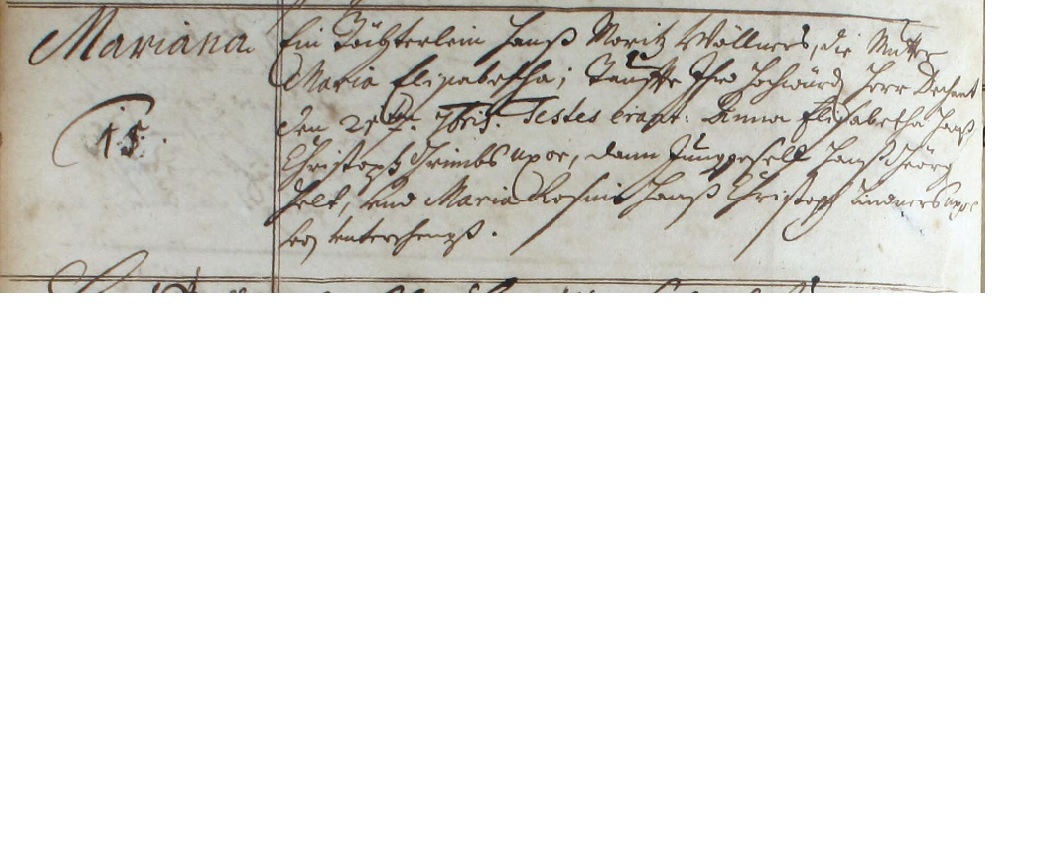 Mariana
15.
Ein Töchterlein Hanß Moritz Wöllners, die Mutter
Maria Elisabetha; Tauffte Ihro Hochwürd Herr Dechant
den 7bris. Testes erant: Anna Elisabetha Hanß
Christoph uxor, dann Junggesell Hanß Geörg
Helt, und Maria Rosina Hanß Christoph Lindners uxor